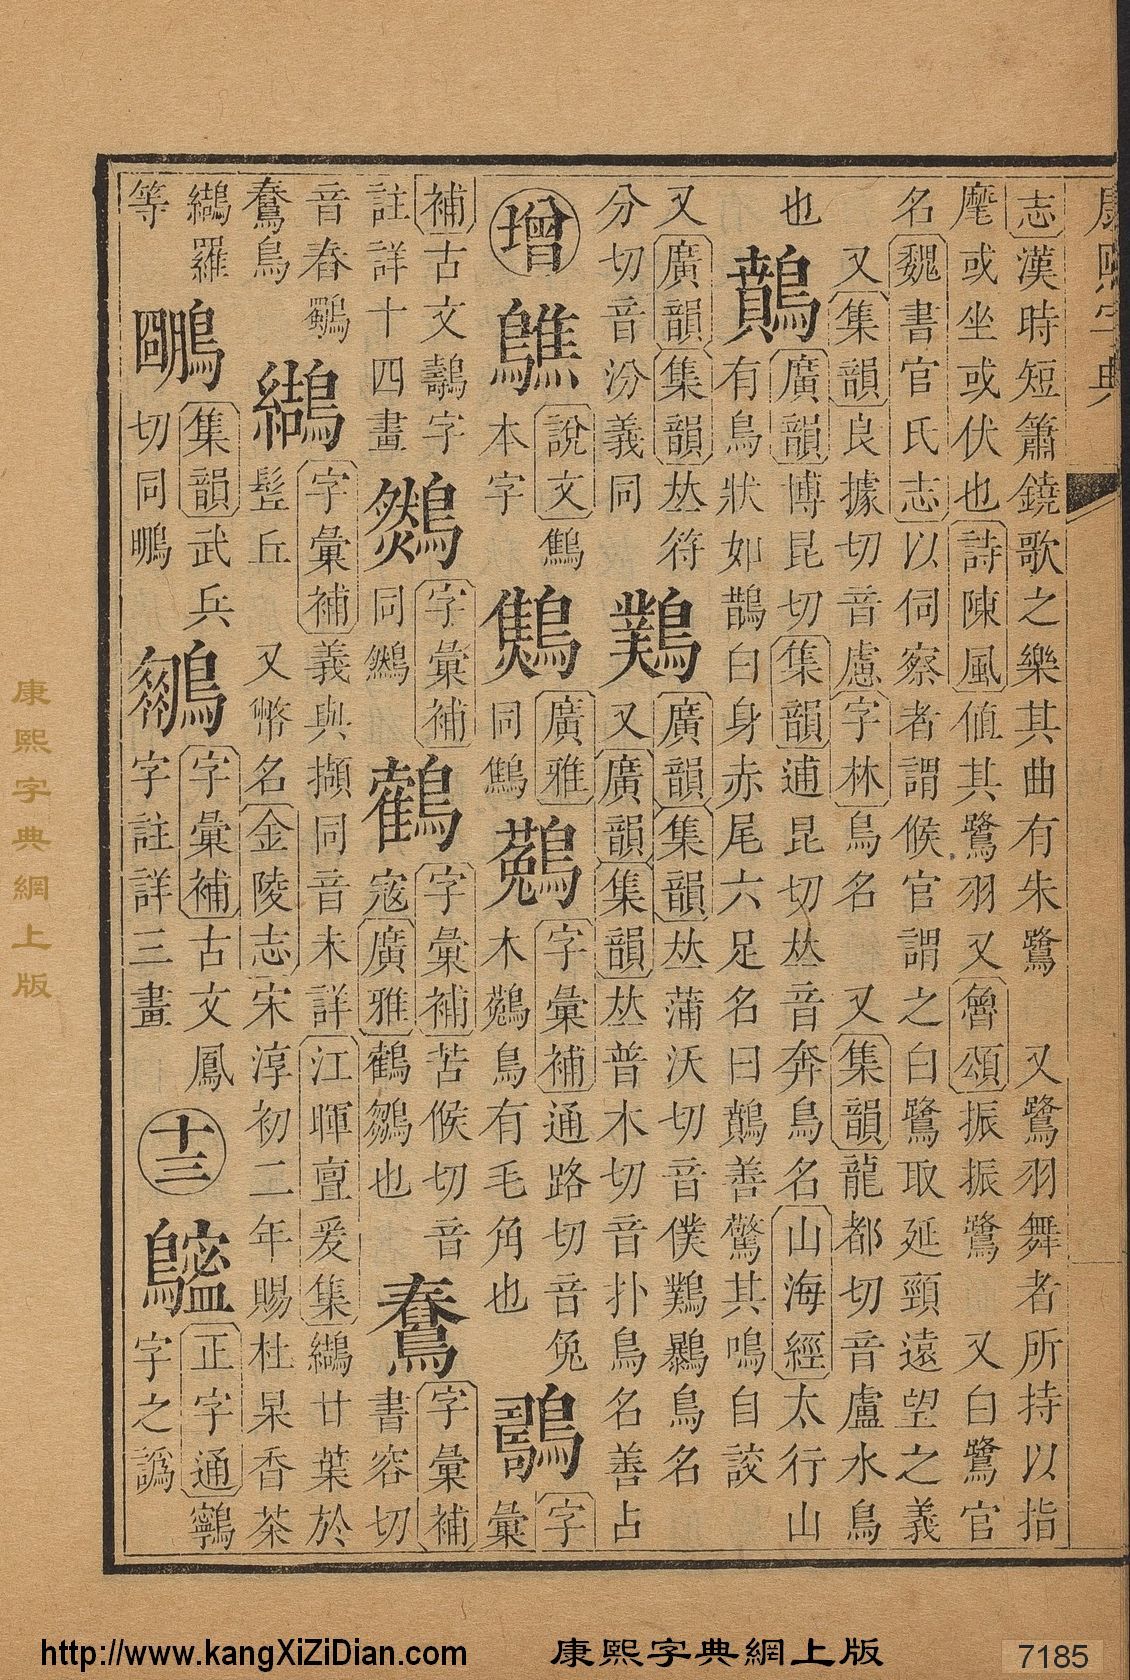 康熙字典
志漢時短簫鐃歌之樂其曲有朱鷺又鷺羽舞者所持以指
麾或坐或伏也詩陳風値其鷺羽又魯頌振振鷺又白鷺官
名魏書官氏志以伺察者謂候官謂之白鷺取延頸遠望之義
又集韻良據切音慮字林鳥名又集韻龍都切音盧水鳥
也
鷬
廣韻博昆切集韻逋昆切𠀤音奔鳥名山海經太行山
有鳥狀如鵲白身赤尾六足名曰鷬善驚其鳴自詨
又廣韻集韻𠀤符
分切音汾義同
鸔
廣韻集韻𠀤蒲沃切音僕鸔鸔鳥名
又廣韻集韻𠀤普木切音扑鳥名善占
增
說文鷦
本字
廣雅
同鷦
字彙補通路切音兔
木鵵鳥有毛角也
字彙
補古文鷻字
註詳十四畫
字彙補
同鷜
鶴
字彙補苦候切音
寇廣雅鶴鶵也
鴦
字彙補書容切
音舂
字彙補
義與擷同音未詳江暉亶爰集纈廿葉於
鴦鳥
髻丘
又幣名金陵志宋淳初二年賜杜杲香茶
纈羅
等
集韻武兵
切同鵬
字彙補古文鳳
字註詳三畫
十三
正字通鸋
字之譌
康熙字典網上版
http://www.kangXiZiDian.com
康熙字典網上版
7185